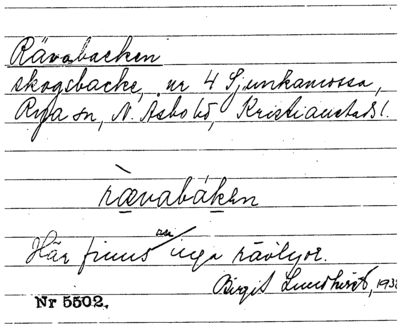 Rävabacken
skogsbacke, nr 4 Sjunkamossa,
Rya sn, N. Åsbo hd, Kristianstads l.
rævabáken
Här finns nu inga rävlyor.
Birgit Lundkvist, 1938
Nr 5502.